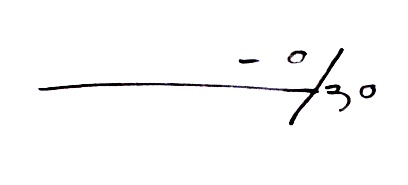 - 0/30